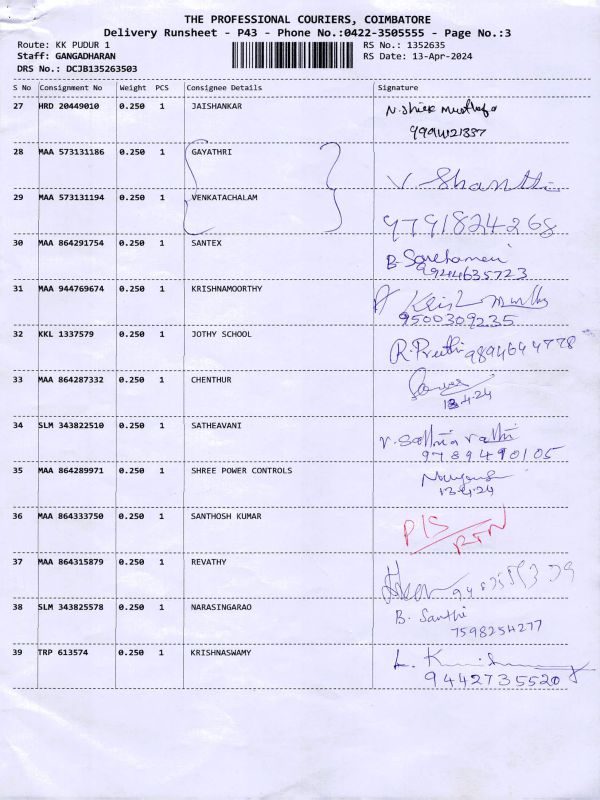 THE PROFESSIONAL COURIERS, COIMBATORE
Delivery Runsheet - P43 - Phone No.:0422-3505555 - Page No.:3
Route: KK PUDUR 1 RS No.: 1352635
Staff: GANGADHARAN RS Date: 13-Apr-2024
DRS No.: DCJB135263503
S No Consignment No Weight PCS Consignee Details Signature
27 HRD 20449010 0.250 1 JAISHANKAR
28 MAA 573131186 0.250 1 GAYATHRI V. Shanthi
29 MAA 573131194 0.250 1 VENKATACHALAM 9791824268
30 MAA 864291754 0.250 1 SANTEX B.
9944635723
31 MAA 944769674 0.250 1 KRISHNAMOORTHY
9500309235
32 KKL 1337579 0.250 1 JOTHY SCHOOL R. Preethi 9894644778
33 MAA 864287332 0.250 1 CHENTHUR
13.4.24
34 SLM 343822510 0.250 1 SATHEAVANI V. Sathia vathi
9789490105
35 MAA 864289971 0.250 1 SHREE POWER CONTROLS
13.4.24
36 MAA 864333750 0.250 1 SANTHOSH KUMAR P/S
RTN
37 MAA 864315879 0.250 1 REVATHY
38 SLM 343825578 0.250 1 NARASINGARAO B. Santhi
7598254277
39 TRP 613574 0.250 1 KRISHNASWAMY L.
9442735520